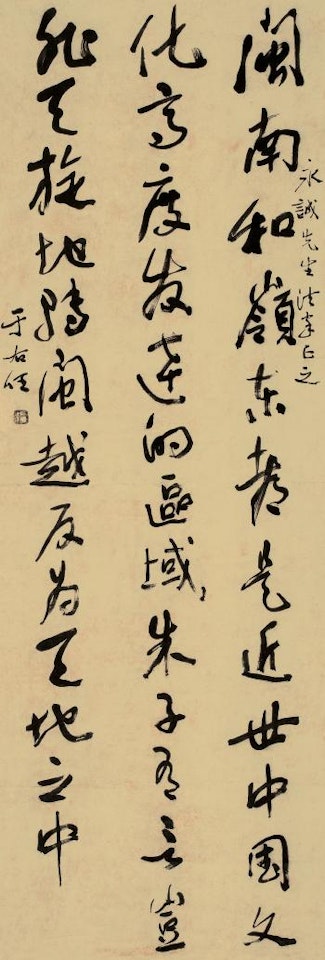 閩南和嶺東都是近世中國文
永誠先生法家正之
化高度发達的區域，朱子有言豈
非天旋地轉閩越反為天地之中
于右任